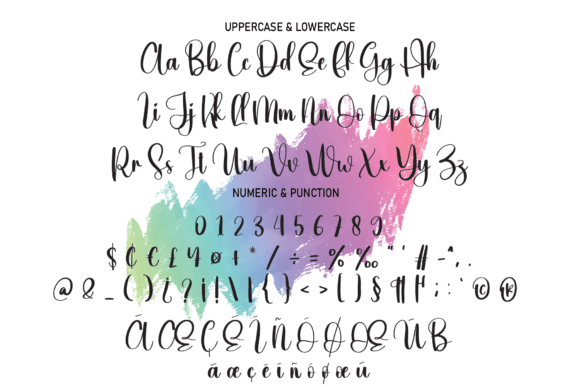 UPPERCASE & LOWERCASE
Aa Bb Cc Dd Ee Ff Gg Hh
Ii Jj Kk Ll Mm Nn Oo Pp Qq
Rr Ss Tt Uu Vv Ww Xx Yy Zz
NUMERIC & PUNCTION
0 1 2 3 4 5 6 7 8 9
$ ¢ € £ ¥ ø + * / ÷ = % ‰ " ' # - ^ , .
@ & _ ( ) ¿ ? ¡ ! \ | { } < > [ ] § ¶ † ; : ` © ®
Á Œ Ç É Í Ñ Ó Ø Œ Ú ß
á æ ç é í ñ ó ø œ ú